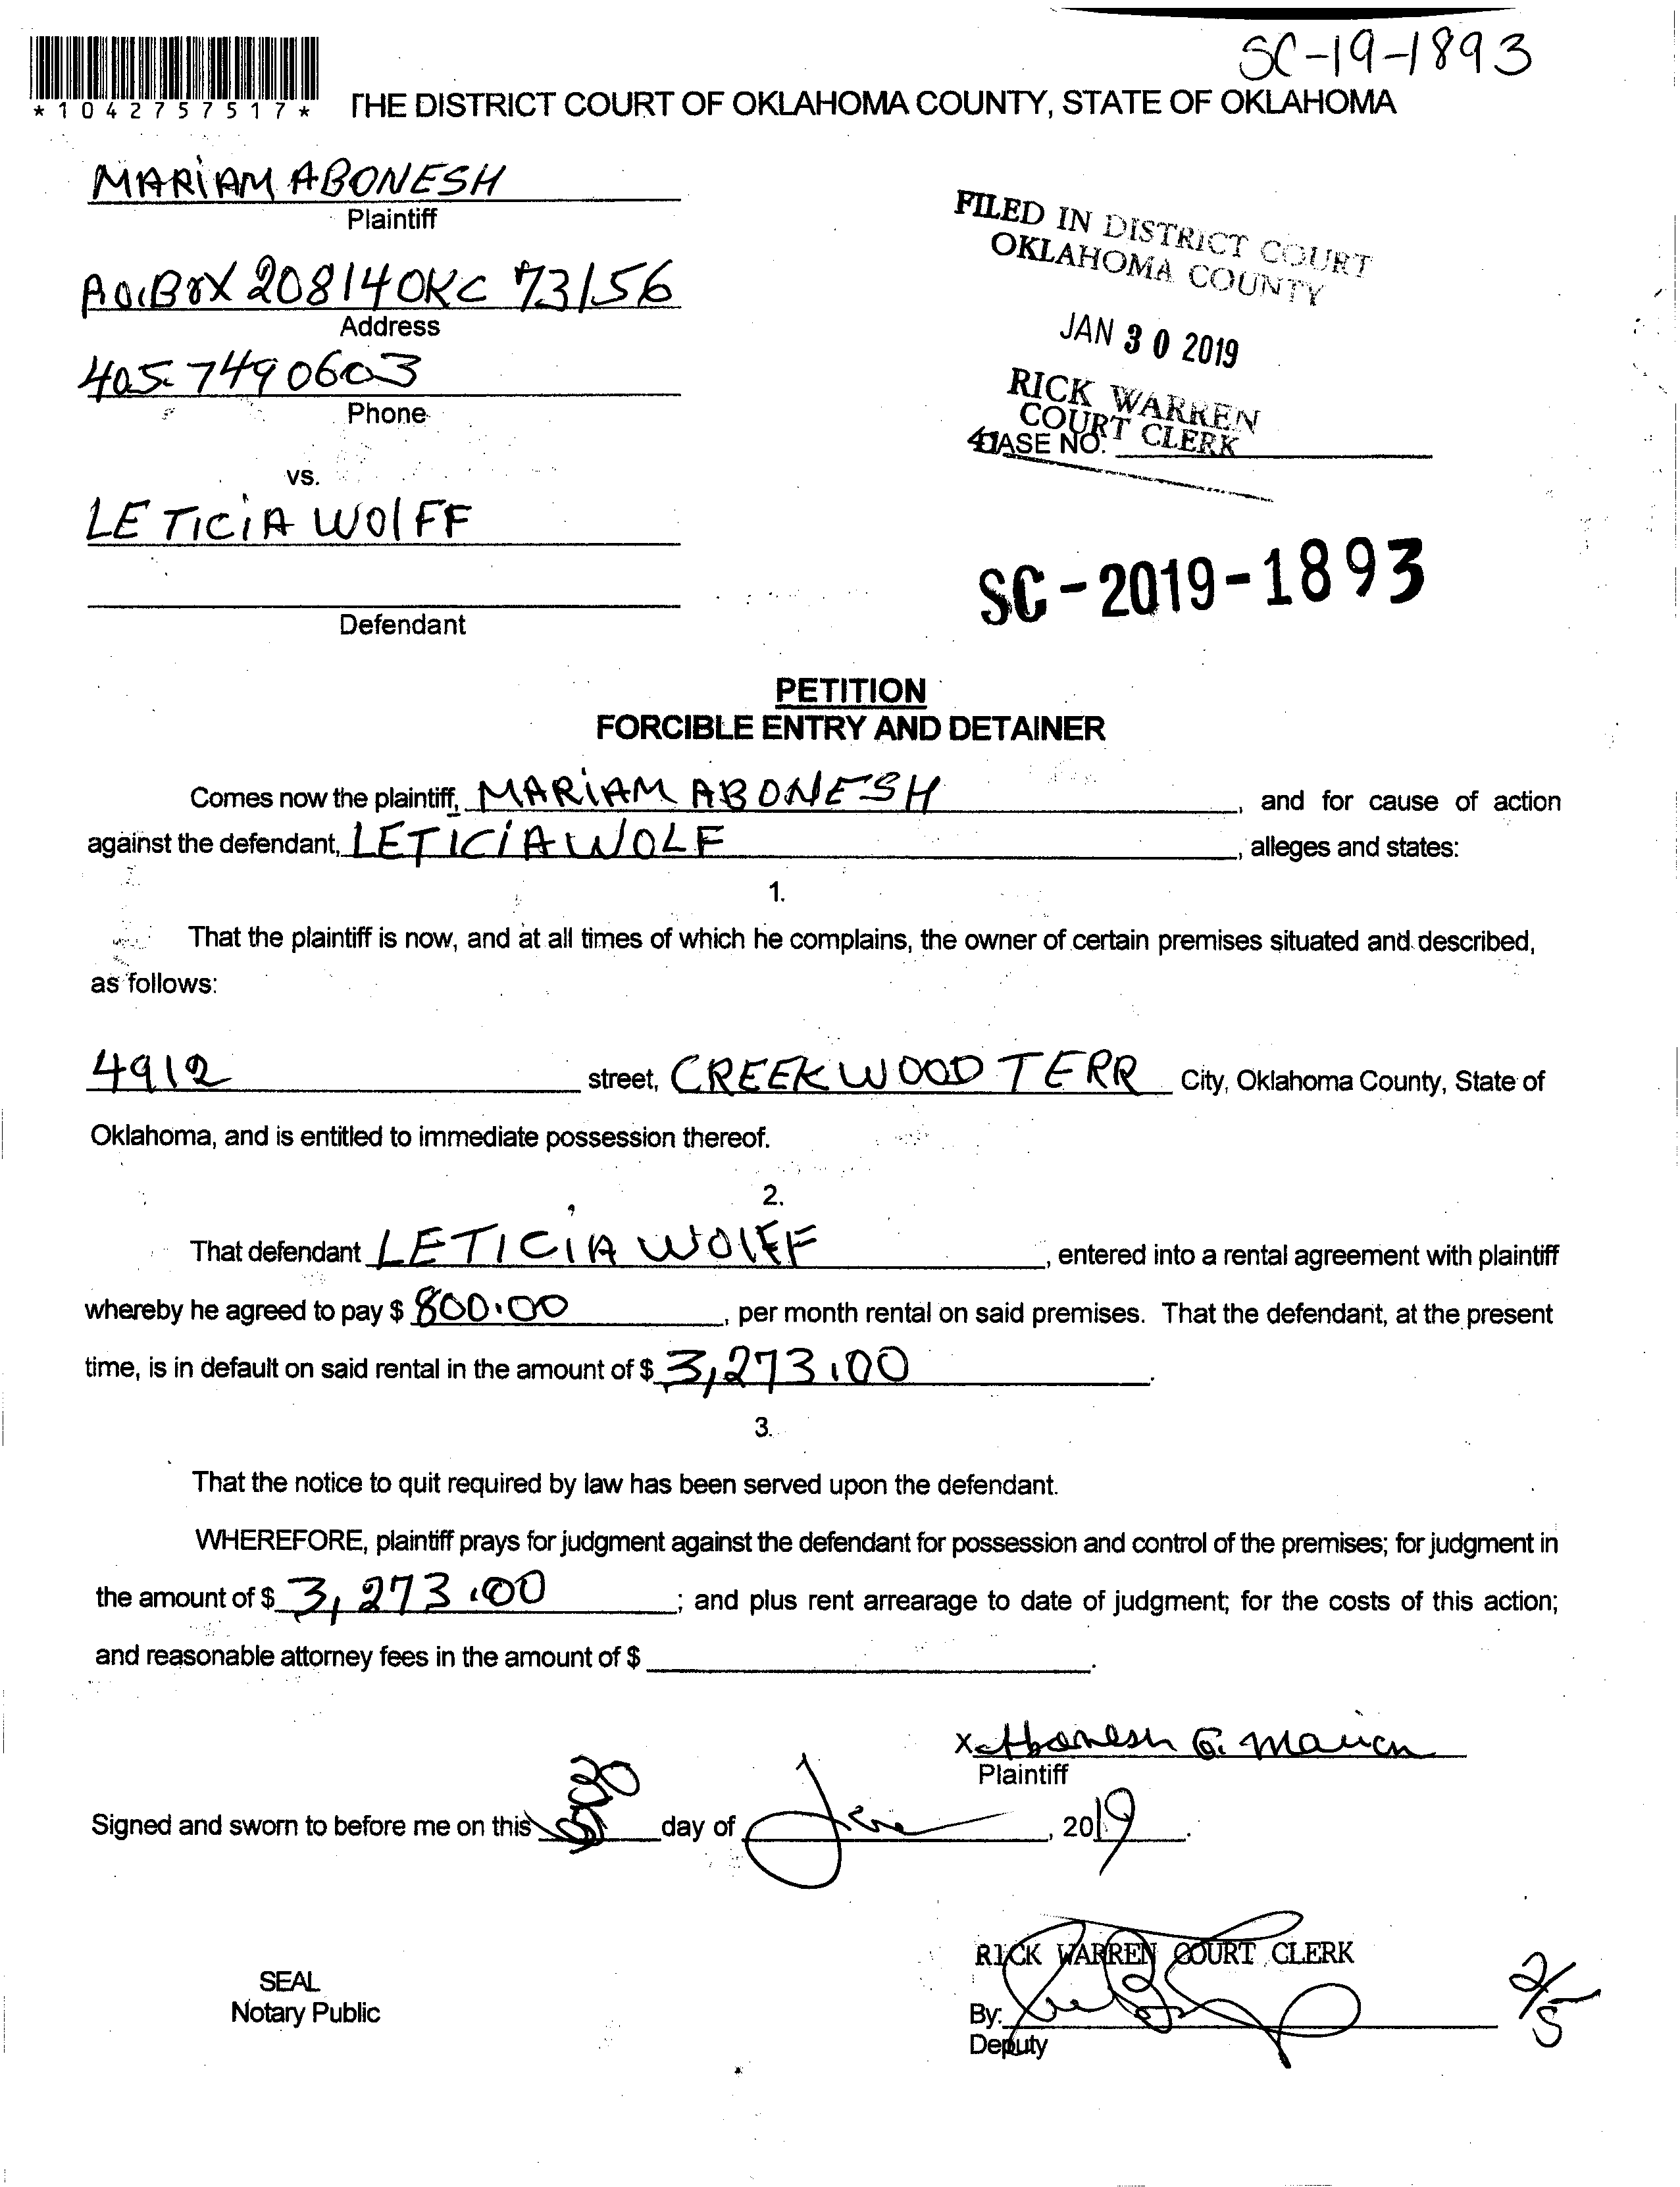 SC-19-1893
*1042757517*
THE DISTRICT COURT OF OKLAHOMA COUNTY, STATE OF OKLAHOMA
MARIAM ABONESH
Plaintiff
P.O. BOX 20814 OKC 73156
Address
405 749 0603
Phone
FILED IN DISTRICT COURT
OKLAHOMA COUNTY
JAN 30 2019
RICK WARREN
COURT CLERK
41
CASE NO.
vs.
LETICIA WOlFF
Defendant
SC-2019-1893
PETITION
FORCIBLE ENTRY AND DETAINER
Comes now the plaintiff, MARIAM ABONESH, and for cause of action
against the defendant, LETICIA WOLF, alleges and states:
1.
That the plaintiff is now, and at all times of which he complains, the owner of certain premises situated and described,
as follows:
4912 street, CREEKWOOD TERR City, Oklahoma County, State of
Oklahoma, and is entitled to immediate possession thereof.
2.
That defendant LETICIA WOlFF, entered into a rental agreement with plaintiff
whereby he agreed to pay $ 800.00, per month rental on said premises. That the defendant, at the present
time, is in default on said rental in the amount of $ 3,273.00.
3.
That the notice to quit required by law has been served upon the defendant.
WHEREFORE, plaintiff prays for judgment against the defendant for possession and control of the premises; for judgment in
the amount of $ 3,273.00; and plus rent arrearage to date of judgment; for the costs of this action;
and reasonable attorney fees in the amount of $ .
X Abonesh G. Mariam
Plaintiff
Signed and sworn to before me on this 30 day of Jan, 2019.
RICK WARREN COURT CLERK
SEAL
Notary Public
By:
Deputy
2/5